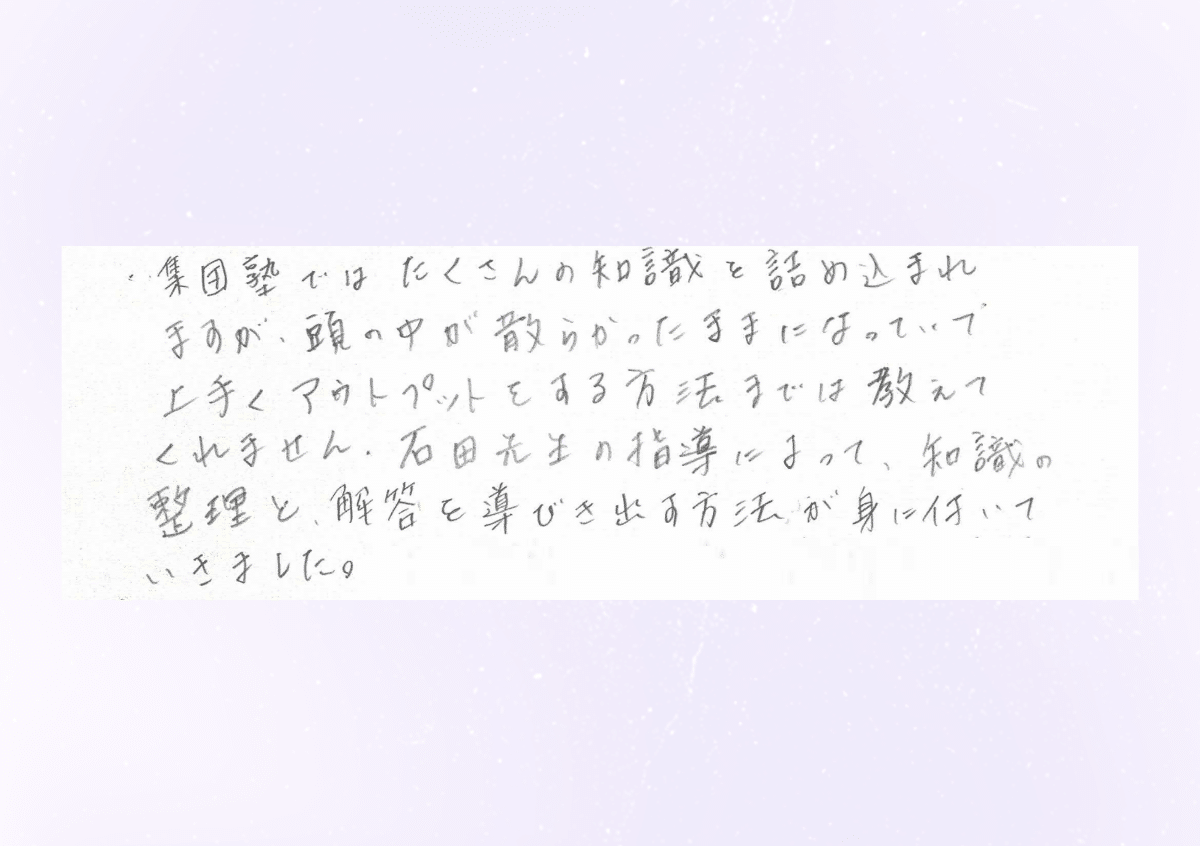 ・集団塾ではたくさんの知識を詰め込まれ
ますが、頭の中が散らかったままになっていて
上手くアウトプットをする方法までは教えて
くれません。石田先生の指導によって、知識の
整理と、解答を導びき出す方法が身に付いて
いきました。